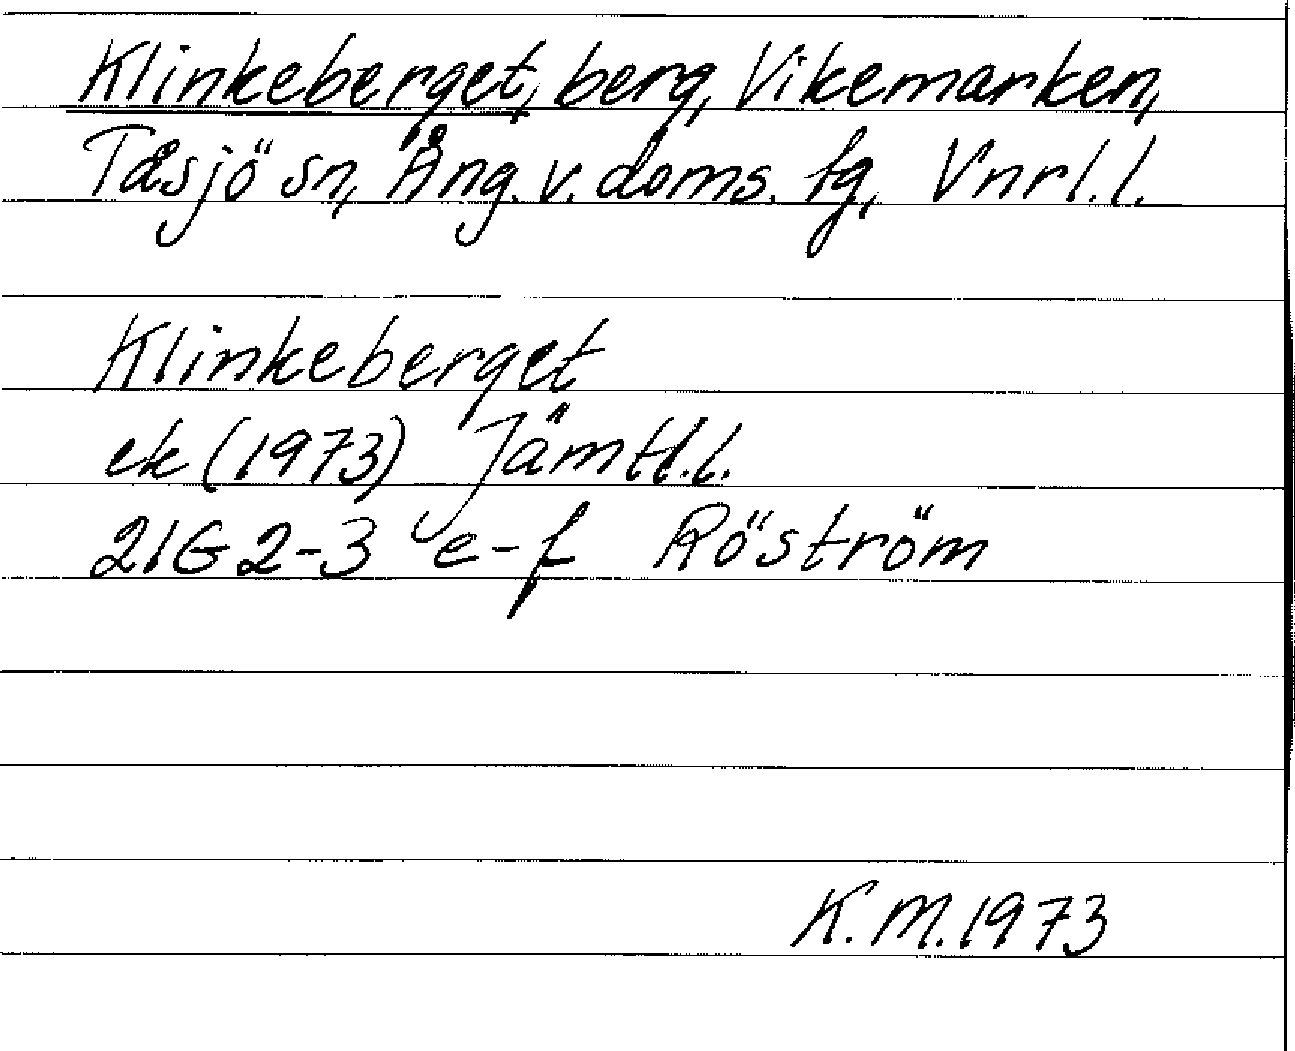 Klinkeberget, berg, Vikemarken,
Tåsjö sn, Ång. v. doms. fg, Vnrl. l.
Klinkeberget
ek (1973) Jämtl. l.
21G 2-3 e-f Röström
K. M. 1973